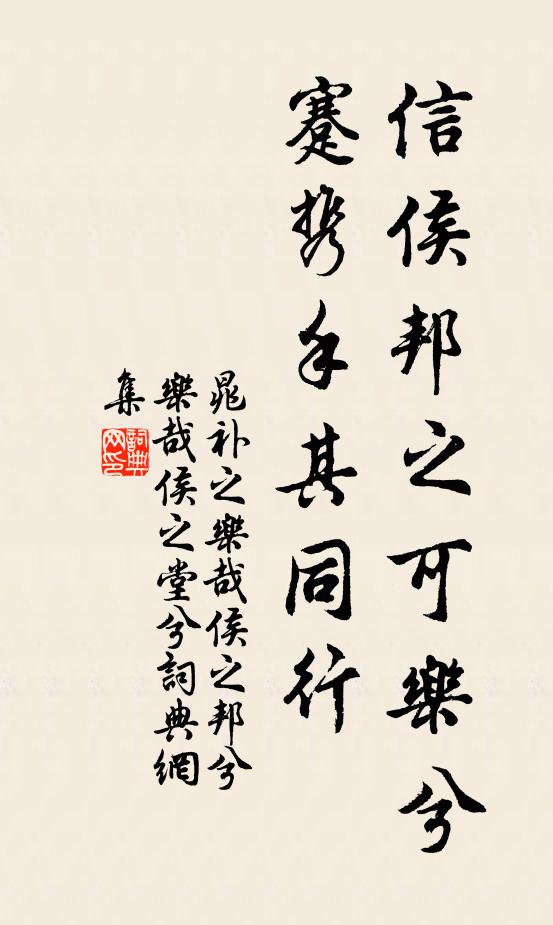 信侯邦之可樂兮
蹇攜手其同行
晁补之樂哉侯之邦兮
樂哉侯之堂兮詞典網
集
詞典
网印